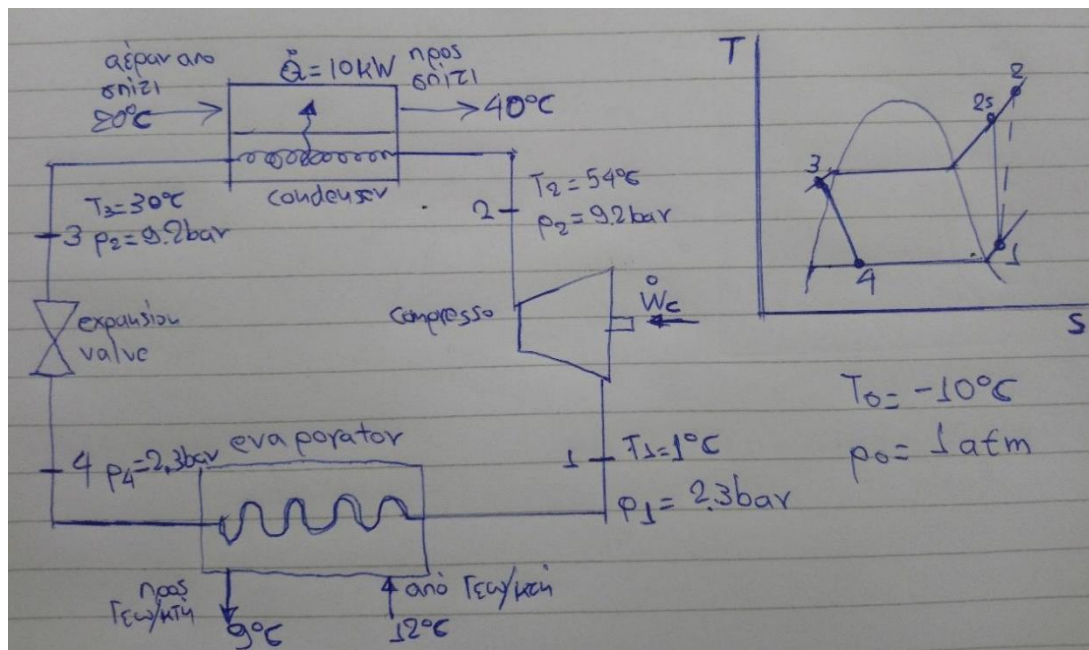 αέραν απο
σπίτι
20°C
Q̇ = 10kW
προς
σπίτι
40°C
condenser
T3 = 30°C
3 p2 = 9.2bar
2
T2 = 54°C
p2 = 9.2bar
expansion
valve
compresso
Ẇc
4 p4 = 2,3bar
evaporator
1 T1 = 1°C
p1 = 2.3bar
προς
Γεω/κτή
9°C
από Γεω/κτή
12°C
T
2
2s
3
4
1
S
T0 = -10°C
p0 = 1 atm